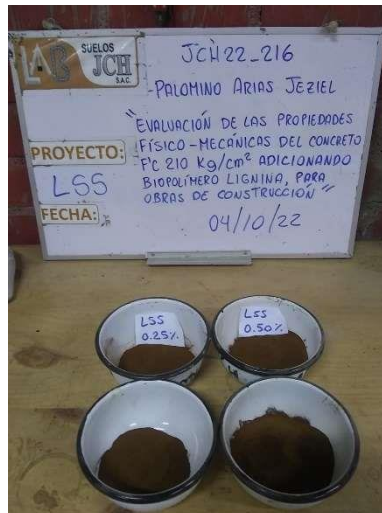 LAB
SUELOS
JCH
S.A.C.
JCH22_216
PALOMINO ARIAS JEZIEL
"EVALUACIÓN DE LAS PROPIEDADES
FÍSICO-MECÁNICAS DEL CONCRETO
F'C 210 Kg/cm² ADICIONANDO
BIOPOLÍMERO LIGNINA, PARA
OBRAS DE CONSTRUCCIÓN"
PROYECTO:
LSS
FECHA:
04/10/22
LSS
0.25%
LSS
0.50%